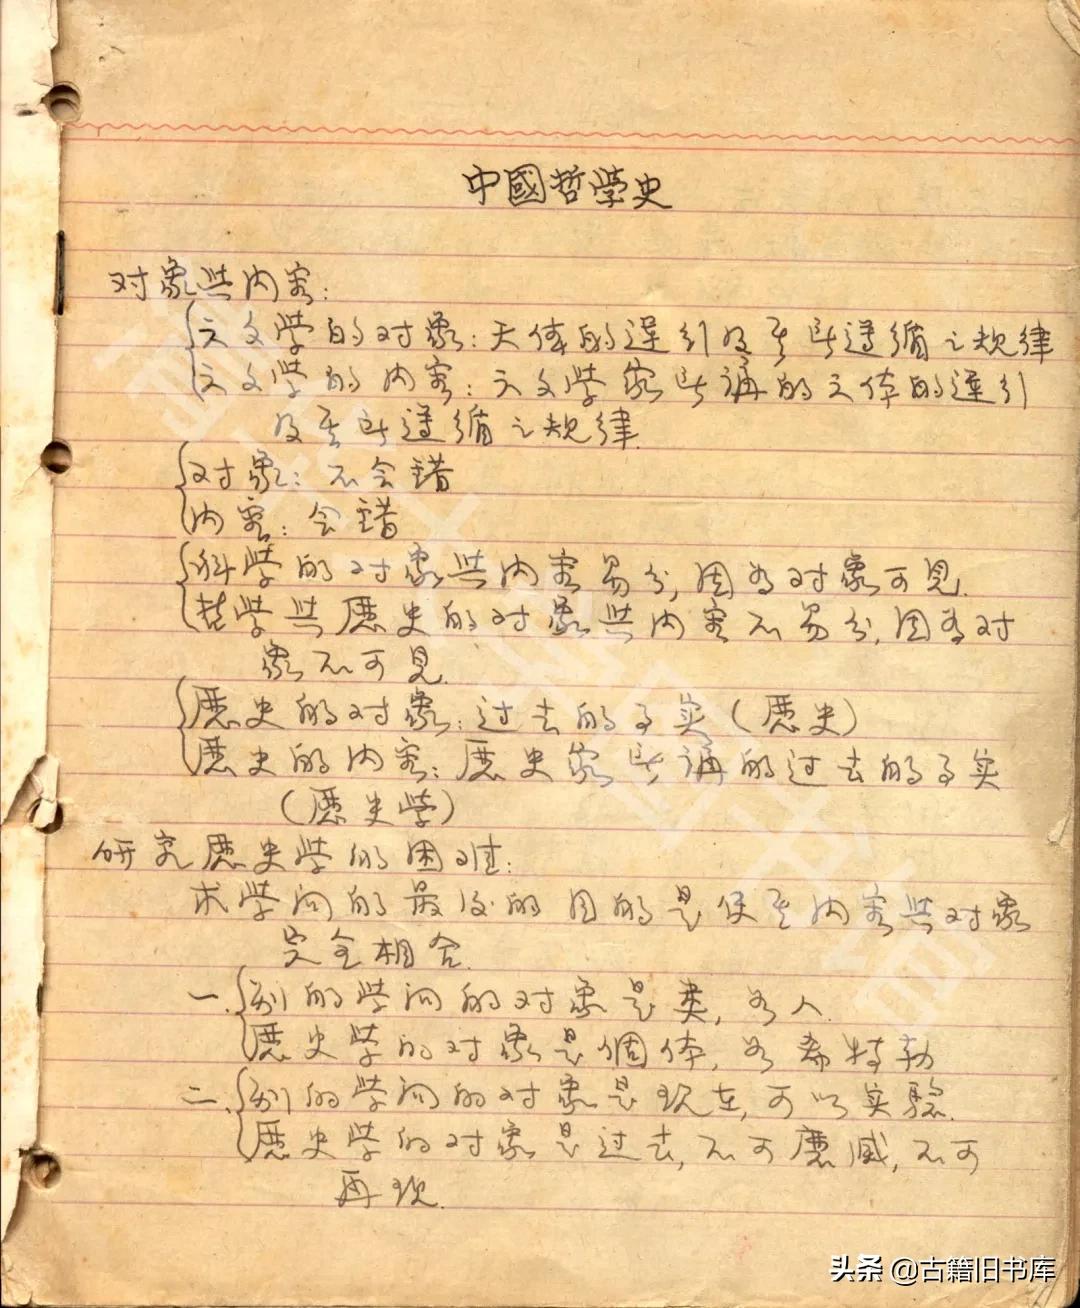 中國哲学史
对象与内容:
天文学的对象:天体的运行及其所遵循之规律
天文学的内容:天文学家所讲的天体的运行
及其所遵循之规律
对象:不会错
内容:会错
科学的对象与内容易分,因为对象可见.
哲学与歷史的对象与内容不易分,因为对
象不可见.
歷史的对象:过去的事实(歷史)
歷史的内容:歷史家所讲的过去的事实
(歷史学)
研究歷史学的困难:
求学问的最后的目的是使其内容与对象
完全相合.
一.别的学问的对象是类,如人.
歷史学的对象是個体,如希特勒
二.别的学问的对象是现在,可以实驗.
歷史学的对象是过去,不可磨滅,不可
再现.
头条 @古籍旧书库